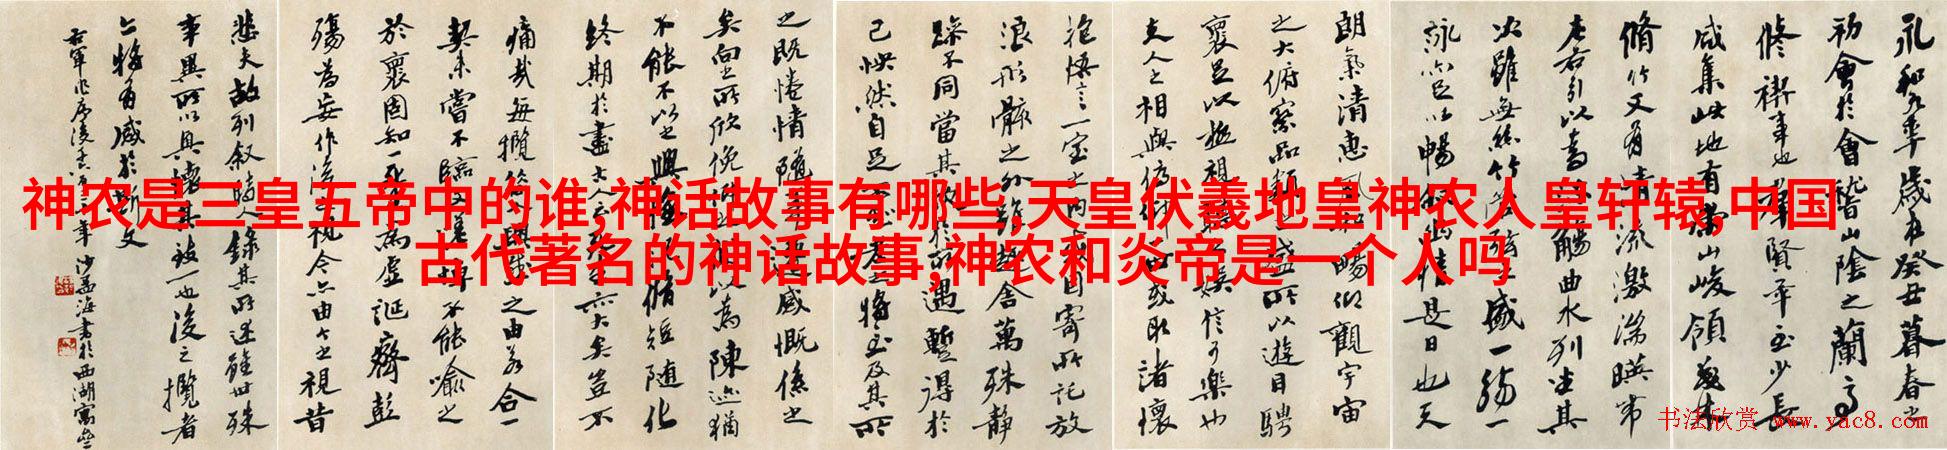 神农是三皇五帝中的谁,神话故事有哪些,天皇伏羲地皇神农人皇轩辕,中国
古代著名的神话故事,神农和炎帝是一个人吗
永和九年歲在癸丑暮春之
初會於會稽山陰之蘭亭
脩禊事也羣賢畢至少長
咸集此地有崇山峻領茂林
脩竹又有清流激湍暎帶
左右引以為流觴曲水列坐其
次雖無絲竹管絃之盛一觴一
詠亦足以暢叙幽情是日也天
朗氣清惠風和暢仰觀宇宙
之大俯察品類之盛所以遊目騁
懷足以極視聽之娛信可樂也
夫人之相與俯仰一世或取諸懷
抱悟言一室之內或因寄所託放
浪形骸之外雖趣舍萬殊靜
躁不同當其欣於所遇暫得於
己怏然自足不知老之將至及其所
之既惓情隨事遷感慨係之
矣向之所欣俛仰之間以為陳迹猶
不能不以之興懷況脩短隨化
終期於盡古人云死生亦大矣豈不
痛哉每攬昔人興感之由若合一
契未嘗不臨文嗟悼不能喻之
於懷固知一死生為虛誕齊彭
殤為妄作後之視今亦由今之視昔
悲夫故列叙時人錄其所述雖世殊
事異所以興懷其致一也後之攬者
亦將有感於斯文
右軍作序後 年 沙孟海書於西湖寓廬
书法欣赏 www.yac8.com